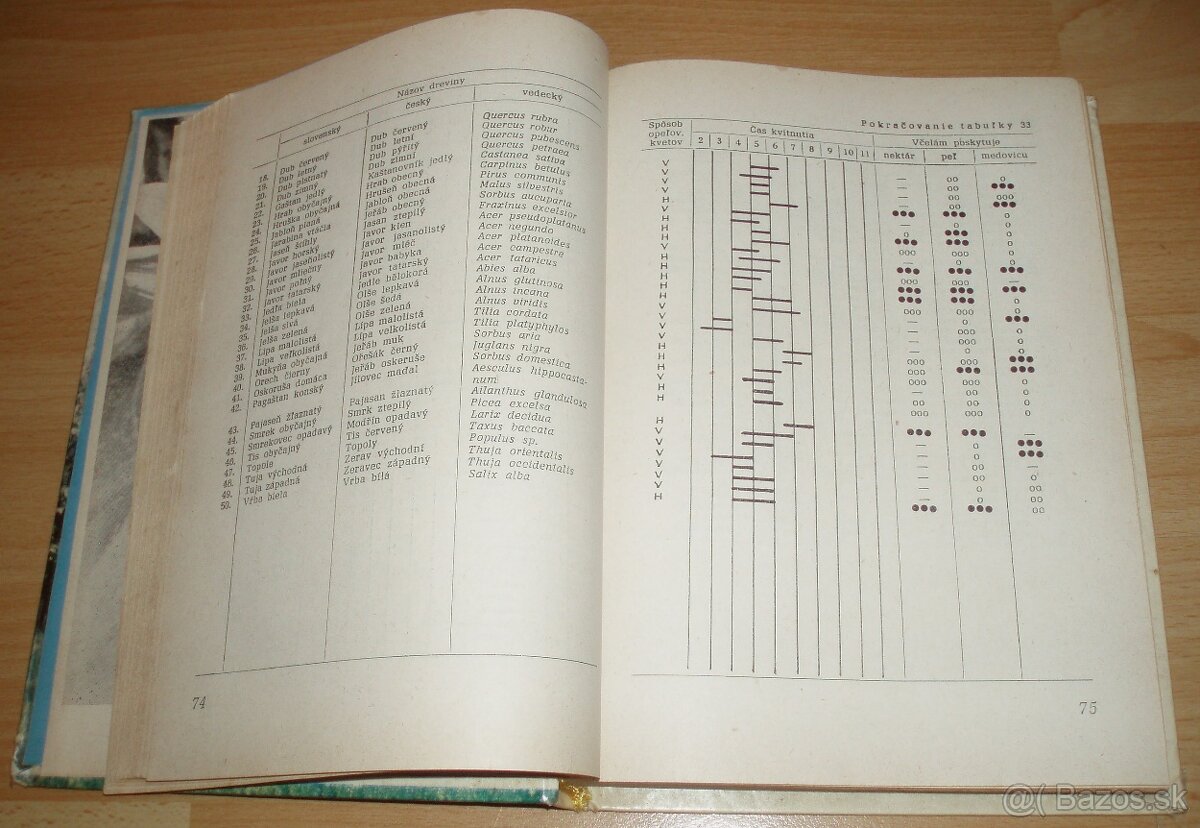 Názov dreviny
slovenský český vedecký
18. Dub červený Dub červený Quercus rubra
19. Dub letný Dub letní Quercus robur
20. Dub plstnatý Dub pýřitý Quercus pubescens
21. Dub zimný Dub zimní Quercus petraea
22. Gaštan jedlý Kaštanovník jedlý Castanea sativa
23. Hrab obyčajný Hrab obecný Carpinus betulus
24. Hruška obyčajná Hrušeň obecná Pirus communis
25. Jabloň planá Jabloň obecná Malus silvestris
26. Jarabina vtáčia Jeřáb obecný Sorbus aucuparia
27. Jaseň štíhly Jasan ztepilý Fraxinus excelsior
28. Javor horský Javor klen Acer pseudoplatanus
29. Javor jaseňolistý Javor jasanolistý Acer negundo
30. Javor mliečny Javor mléč Acer platanoides
31. Javor poľný Javor babyka Acer campestra
32. Javor tatarský Javor tatarský Acer tataricus
33. Jedľa biela Jedle bělokorá Abies alba
34. Jelša lepkavá Olše lepkavá Alnus glutinosa
35. Jelša sivá Olše šedá Alnus incana
36. Jelša zelená Olše zelená Alnus viridis
37. Lipa malolistá Lípa malolistá Tilia cordata
38. Lipa veľkolistá Lípa velkolistá Tilia platyphylos
39. Mukyňa obyčajná Jeřáb muk Sorbus aria
40. Orech čierny Ořešák černý Juglans nigra
41. Oskoruša domáca Jeřáb oskeruše Sorbus domestica
42. Pagaštan konský Jílovec maďal Aesculus hippocasta-
num
43. Pajaseň žlaznatý Pajasan žlaznatý Ailanthus glandulosa
44. Smrek obyčajný Smrk ztepilý Picea excelsa
45. Smrekovec opadavý Modřín opadavý Larix decidua
46. Tis obyčajný Tis červený Taxus baccata
47. Topole Topoly Populus sp.
48. Tuja východná Zerav východní Thuja orientalis
49. Tuja západná Zeravec západný Thuja occidentalis
50. Vŕba biela Vrba bílá Salix alba
74
Pokračovanie tabuľky 33
Spôsob
opeľov.
kvetov
Čas kvitnutia
2 3 4 5 6 7 8 9 10 11
Včelám poskytuje
nektár peľ medovicu
75
@( Bazos.sk